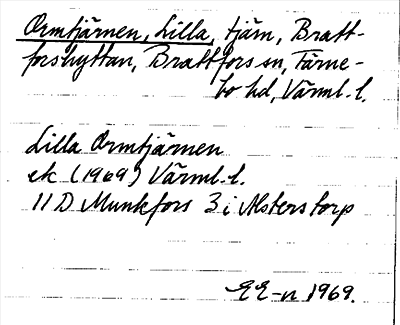 Ormtjärnen, Lilla, tjärn, Bratt-
forshyttan, Brattfors sn, Färne-
bo hd, Värml. l.
Lilla Ormtjärnen
ek (1969) Värml. l.
11 D Munkfors 3 i Alsterstorp
EE-n 1969.